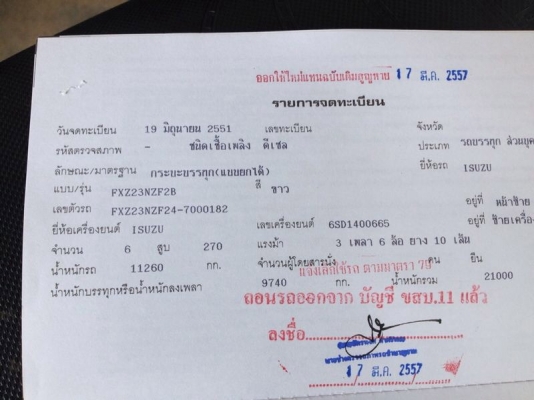 ออกให้ใหม่แทนฉบับเดิมสูญหาย 17 มี.ค. 2557
รายการจดทะเบียน
วันจดทะเบียน 19 มิถุนายน 2551 เลขทะเบียน จังหวัด
รหัสตรวจสภาพ - ชนิดเชื้อเพลิง ดีเซล ประเภท รถบรรทุก ส่วนบุค
ลักษณะ/มาตรฐาน กระบะบรรทุก(แบบยกได้) ยี่ห้อรถ ISUZU
แบบ/รุ่น FXZ23NZF2B สี ขาว
เลขตัวรถ FXZ23NZF24-7000182 อยู่ที่ หน้าซ้าย
ยี่ห้อเครื่องยนต์ ISUZU เลขเครื่องยนต์ 6SD1400665 อยู่ที่ ซ้ายเครื่อง
จำนวน 6 สูบ 270 แรงม้า 3 เพลา 6 ล้อ ยาง 10 เส้น
น้ำหนักรถ 11260 กก. จำนวนผู้โดยสารนั่ง คน ยืน
แจ้งเลิกใช้รถ ตามมาตรา 79
น้ำหนักบรรทุกหรือน้ำหนักลงเพลา 9740 กก. น้ำหนักรวม 21000
ถอนรถออกจาก บัญชี ขสบ.11 แล้ว
ลงชื่อ
17 มี.ค. 2557